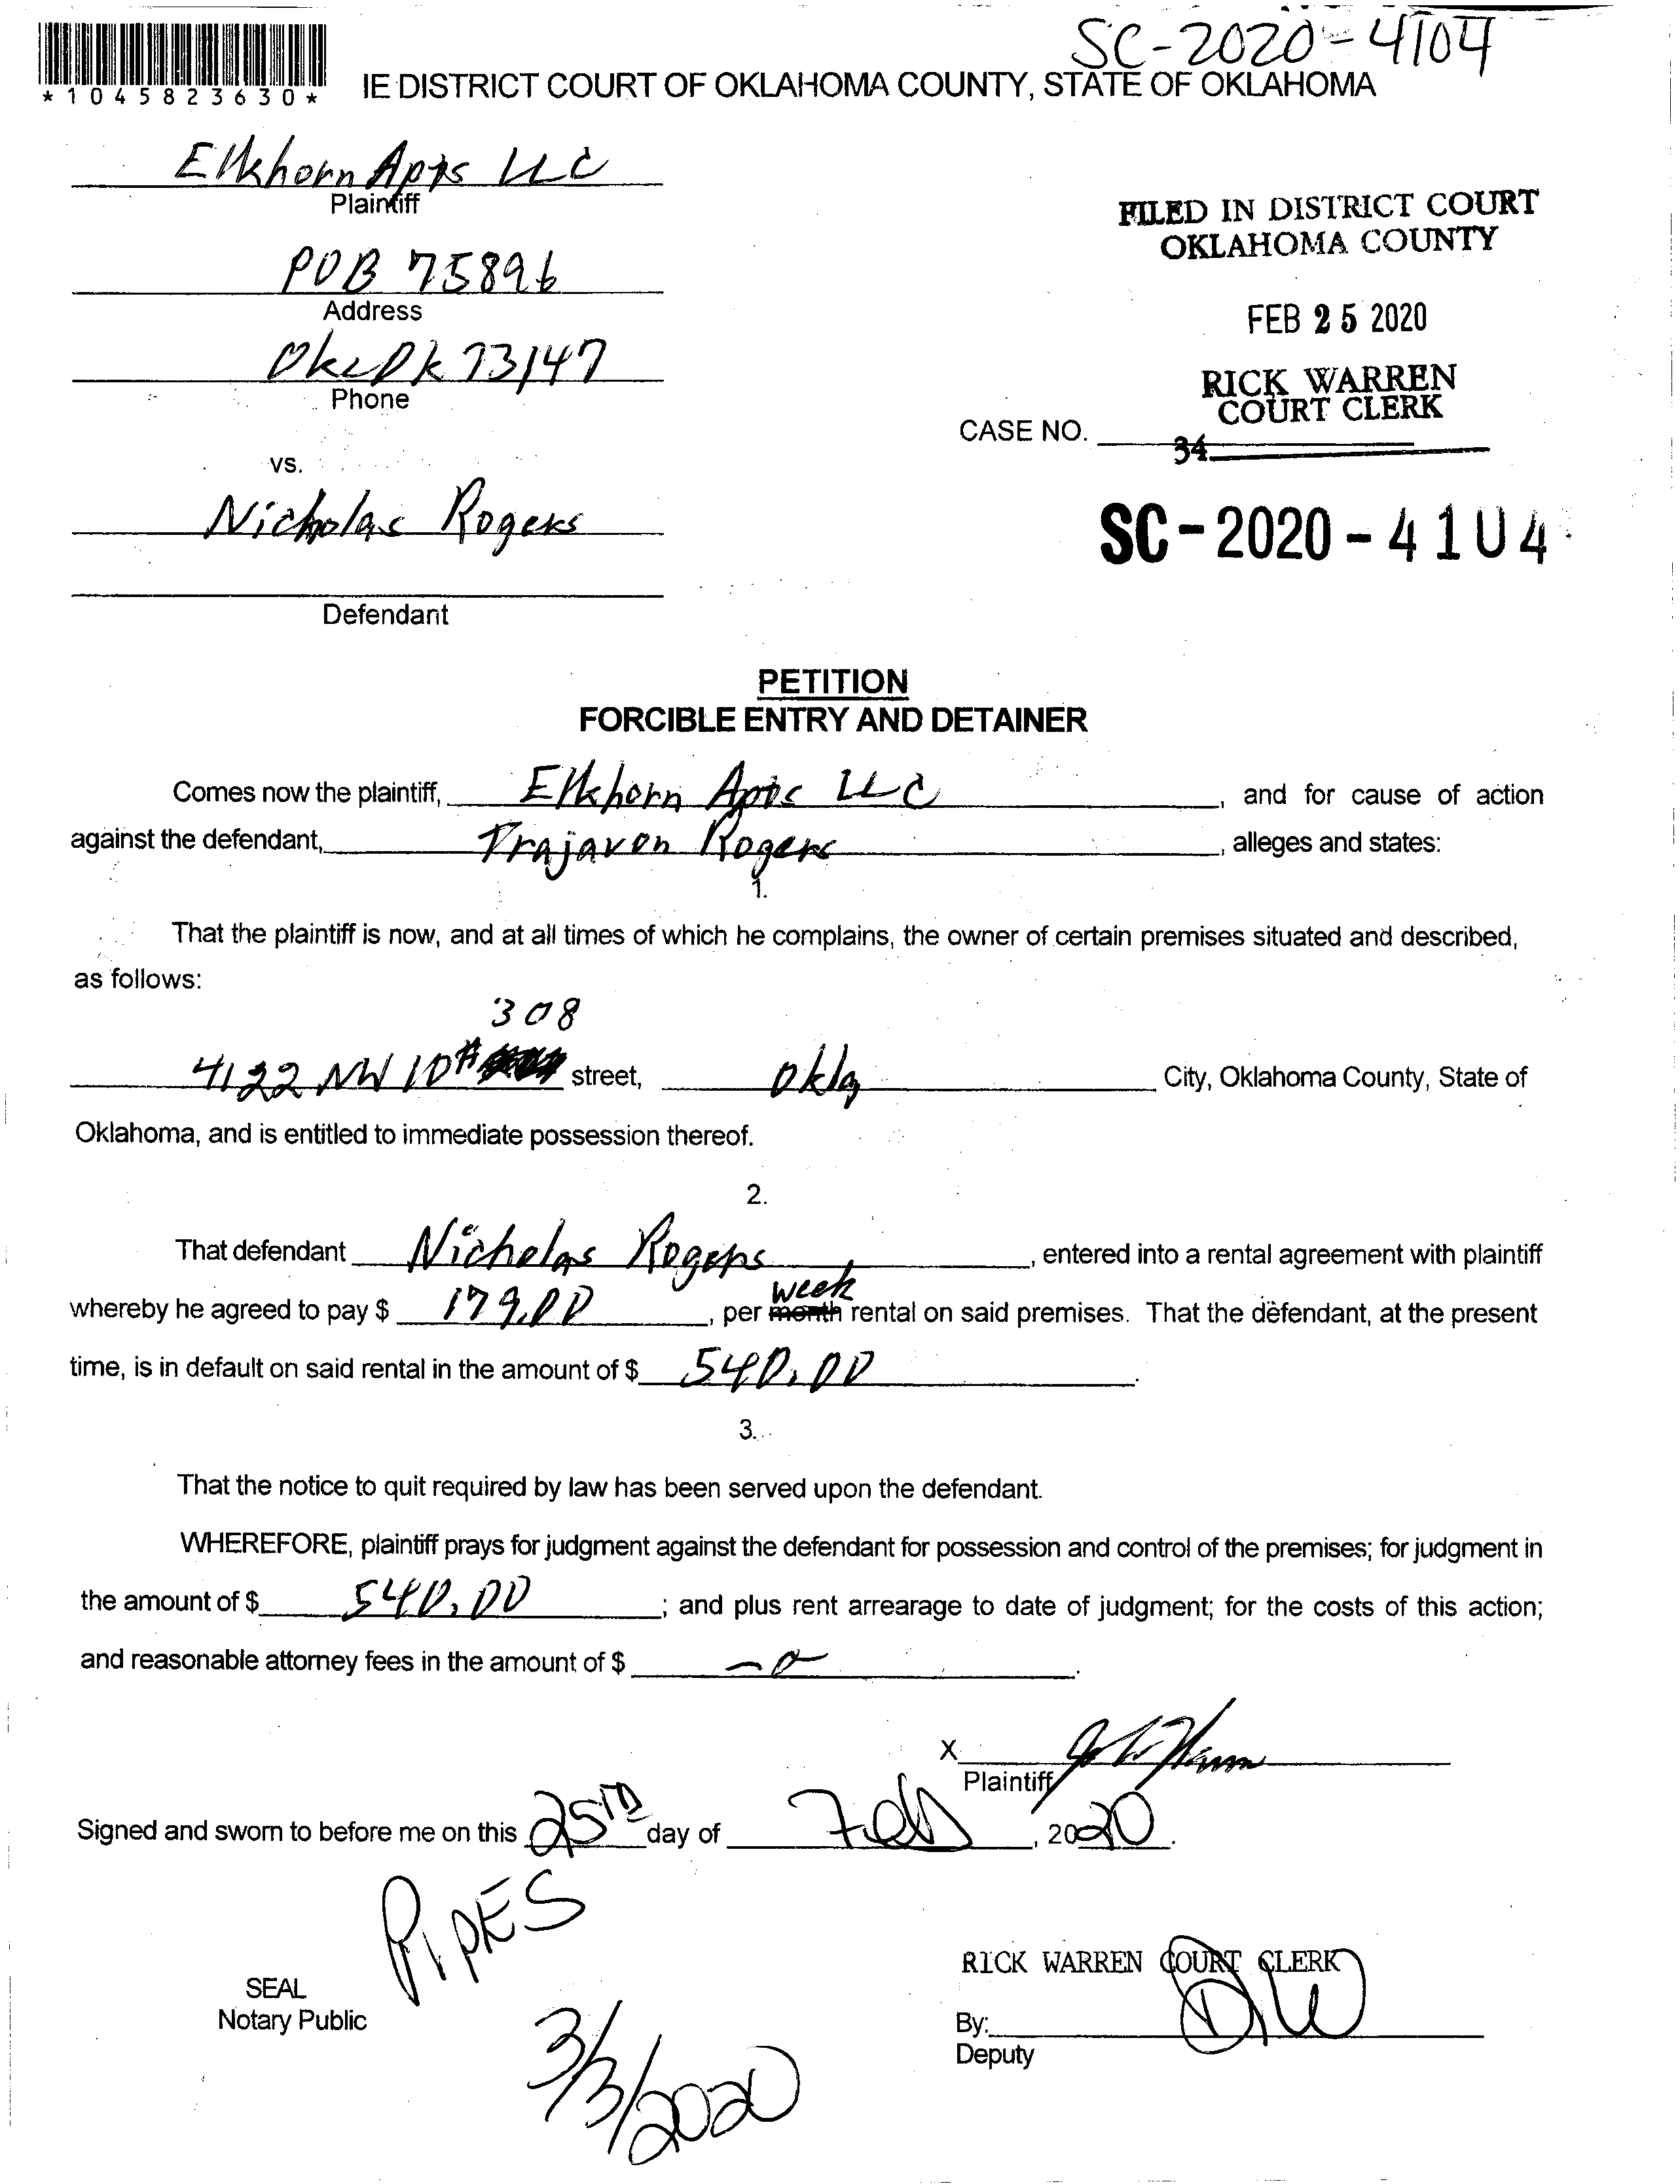 SC-2020-4104
*1045823630*
IE DISTRICT COURT OF OKLAHOMA COUNTY, STATE OF OKLAHOMA
Elkhorn Apts LLC
Plaintiff
FILED IN DISTRICT COURT
OKLAHOMA COUNTY
POB 75896
Address
FEB 25 2020
Okc Ok 73147
Phone
RICK WARREN
COURT CLERK
CASE NO.
34
vs.
Nicholas Rogers
SC-2020-4104
Defendant
PETITION
FORCIBLE ENTRY AND DETAINER
Comes now the plaintiff, Elkhorn Apts LLC, and for cause of action
against the defendant, Trajavon Rogers, alleges and states:
1.
That the plaintiff is now, and at all times of which he complains, the owner of certain premises situated and described,
as follows:
308
4122 NW 10 # street, Okla City, Oklahoma County, State of
Oklahoma, and is entitled to immediate possession thereof.
2.
That defendant Nicholas Rogers, entered into a rental agreement with plaintiff
week
whereby he agreed to pay $ 179.00, per month rental on said premises. That the defendant, at the present
time, is in default on said rental in the amount of $ 540.00.
3.
That the notice to quit required by law has been served upon the defendant.
WHEREFORE, plaintiff prays for judgment against the defendant for possession and control of the premises; for judgment in
the amount of $ 540.00; and plus rent arrearage to date of judgment; for the costs of this action;
and reasonable attorney fees in the amount of $ -0-.
X
Plaintiff
Signed and sworn to before me on this 25TH day of Feb, 2020.
PIPES
RICK WARREN COURT CLERK
SEAL
Notary Public
By: DW
Deputy
3/3/2020